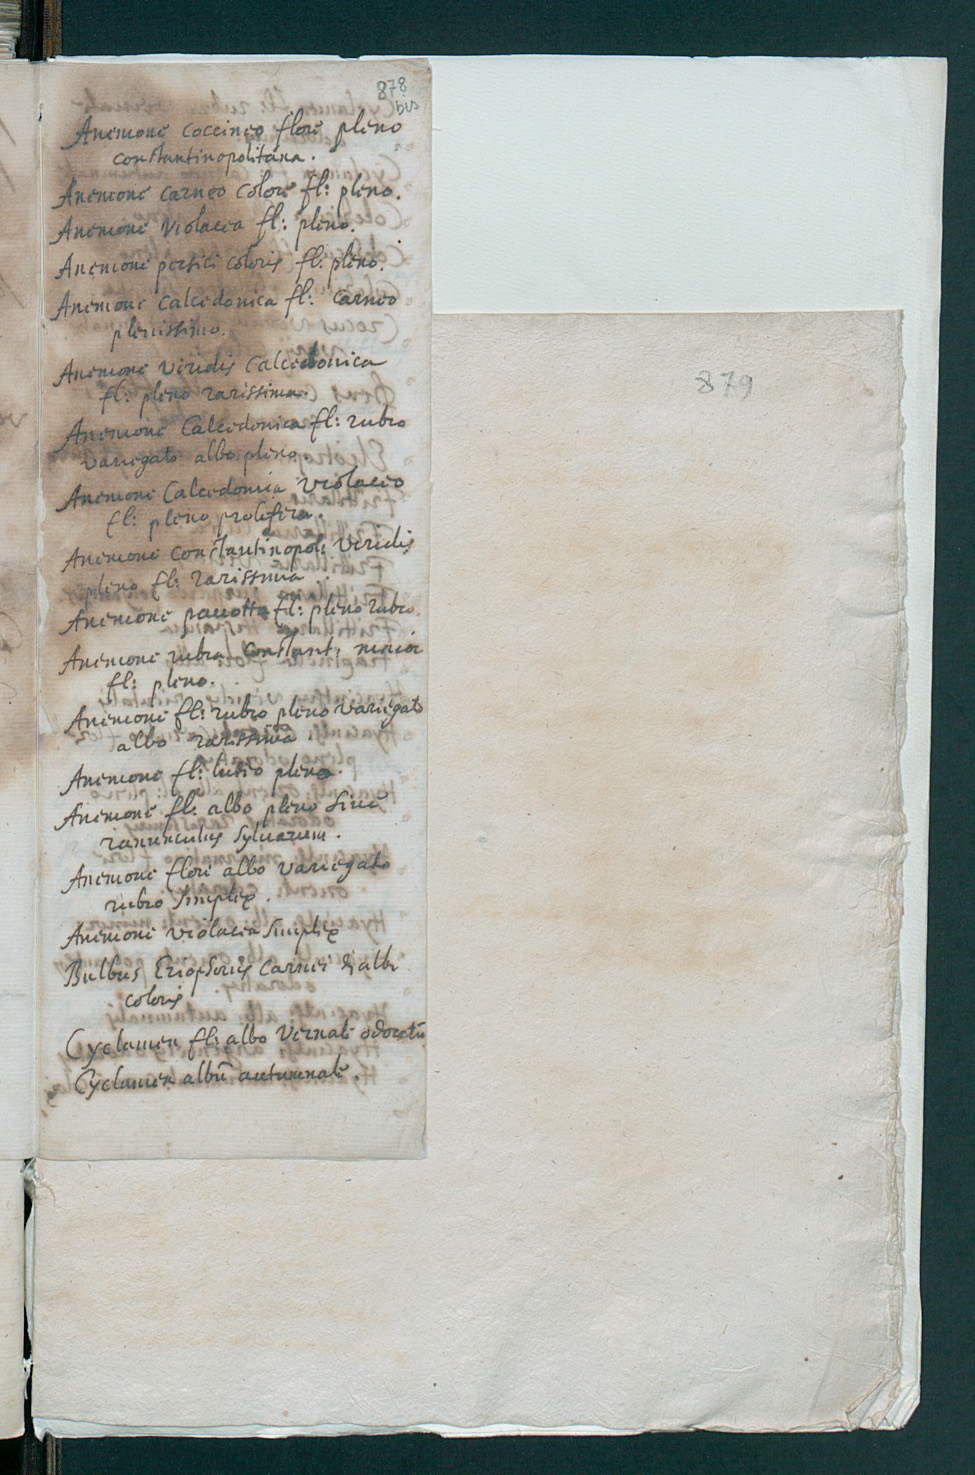 878
bis
Anemone coccineo flore pleno
constantinopolitana.
Anemone carneo colore fl: pleno.
Anemone violacea fl: pleno.
Anemone persici coloris fl: pleno.
Anemone calcedonica fl: carneo
plenissimo.
Anemone viridis calcedonica
fl: pleno rarissima.
Anemone Calcedonica fl: rubro
variegato albo pleno
Anemone Calcedonica violaceo
fl: pleno prolifera.
Anemone constantinopoli viridis
pleno fl: rarissima.
Anemone pauotta fl: pleno rubro.
Anemone rubra constant: maior
fl: pleno.
Anemone fl: rubro pleno variegato
albo rarissima
Anemone fl: luteo pleno.
Anemone fl: albo pleno siue
ranunculus sylvarum.
Anemone flore albo variegato
rubro simplex.
Anemone violacea simplex
Bulbus Eriophorus carnei & albi
coloris
Cyclamen fl: albo vernale odoratū
Cyclamen albū autumnale.
879